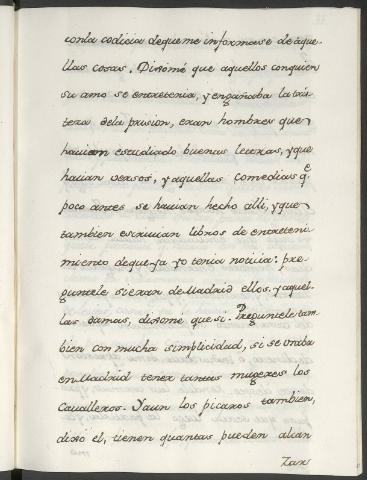 conla codicia dequeme informase de aque-
llas cosas. Dixomé que aquellos conquien
su amo se entretenia, y engañaba la tris-
teza dela prision, eran hombres que
havian estudiado buenas letras, y que
hacian versos, y aquellas comedias q.e
poco antes se havian hecho alli, y que
tambien escrivian libros de entreteni-
miento deque ya yo tenia noticia: pre-
guntele si eran de Madrid ellos. y aquel-
las damas, dixome que si. Preguntele tam-
bien con mucha simplicidad, si se usaba
en Madrid tener tantas mugeres los
Cavalleros. Y aun los picaros tambien,
dixo el, tienen quantas pueden alcan
zar